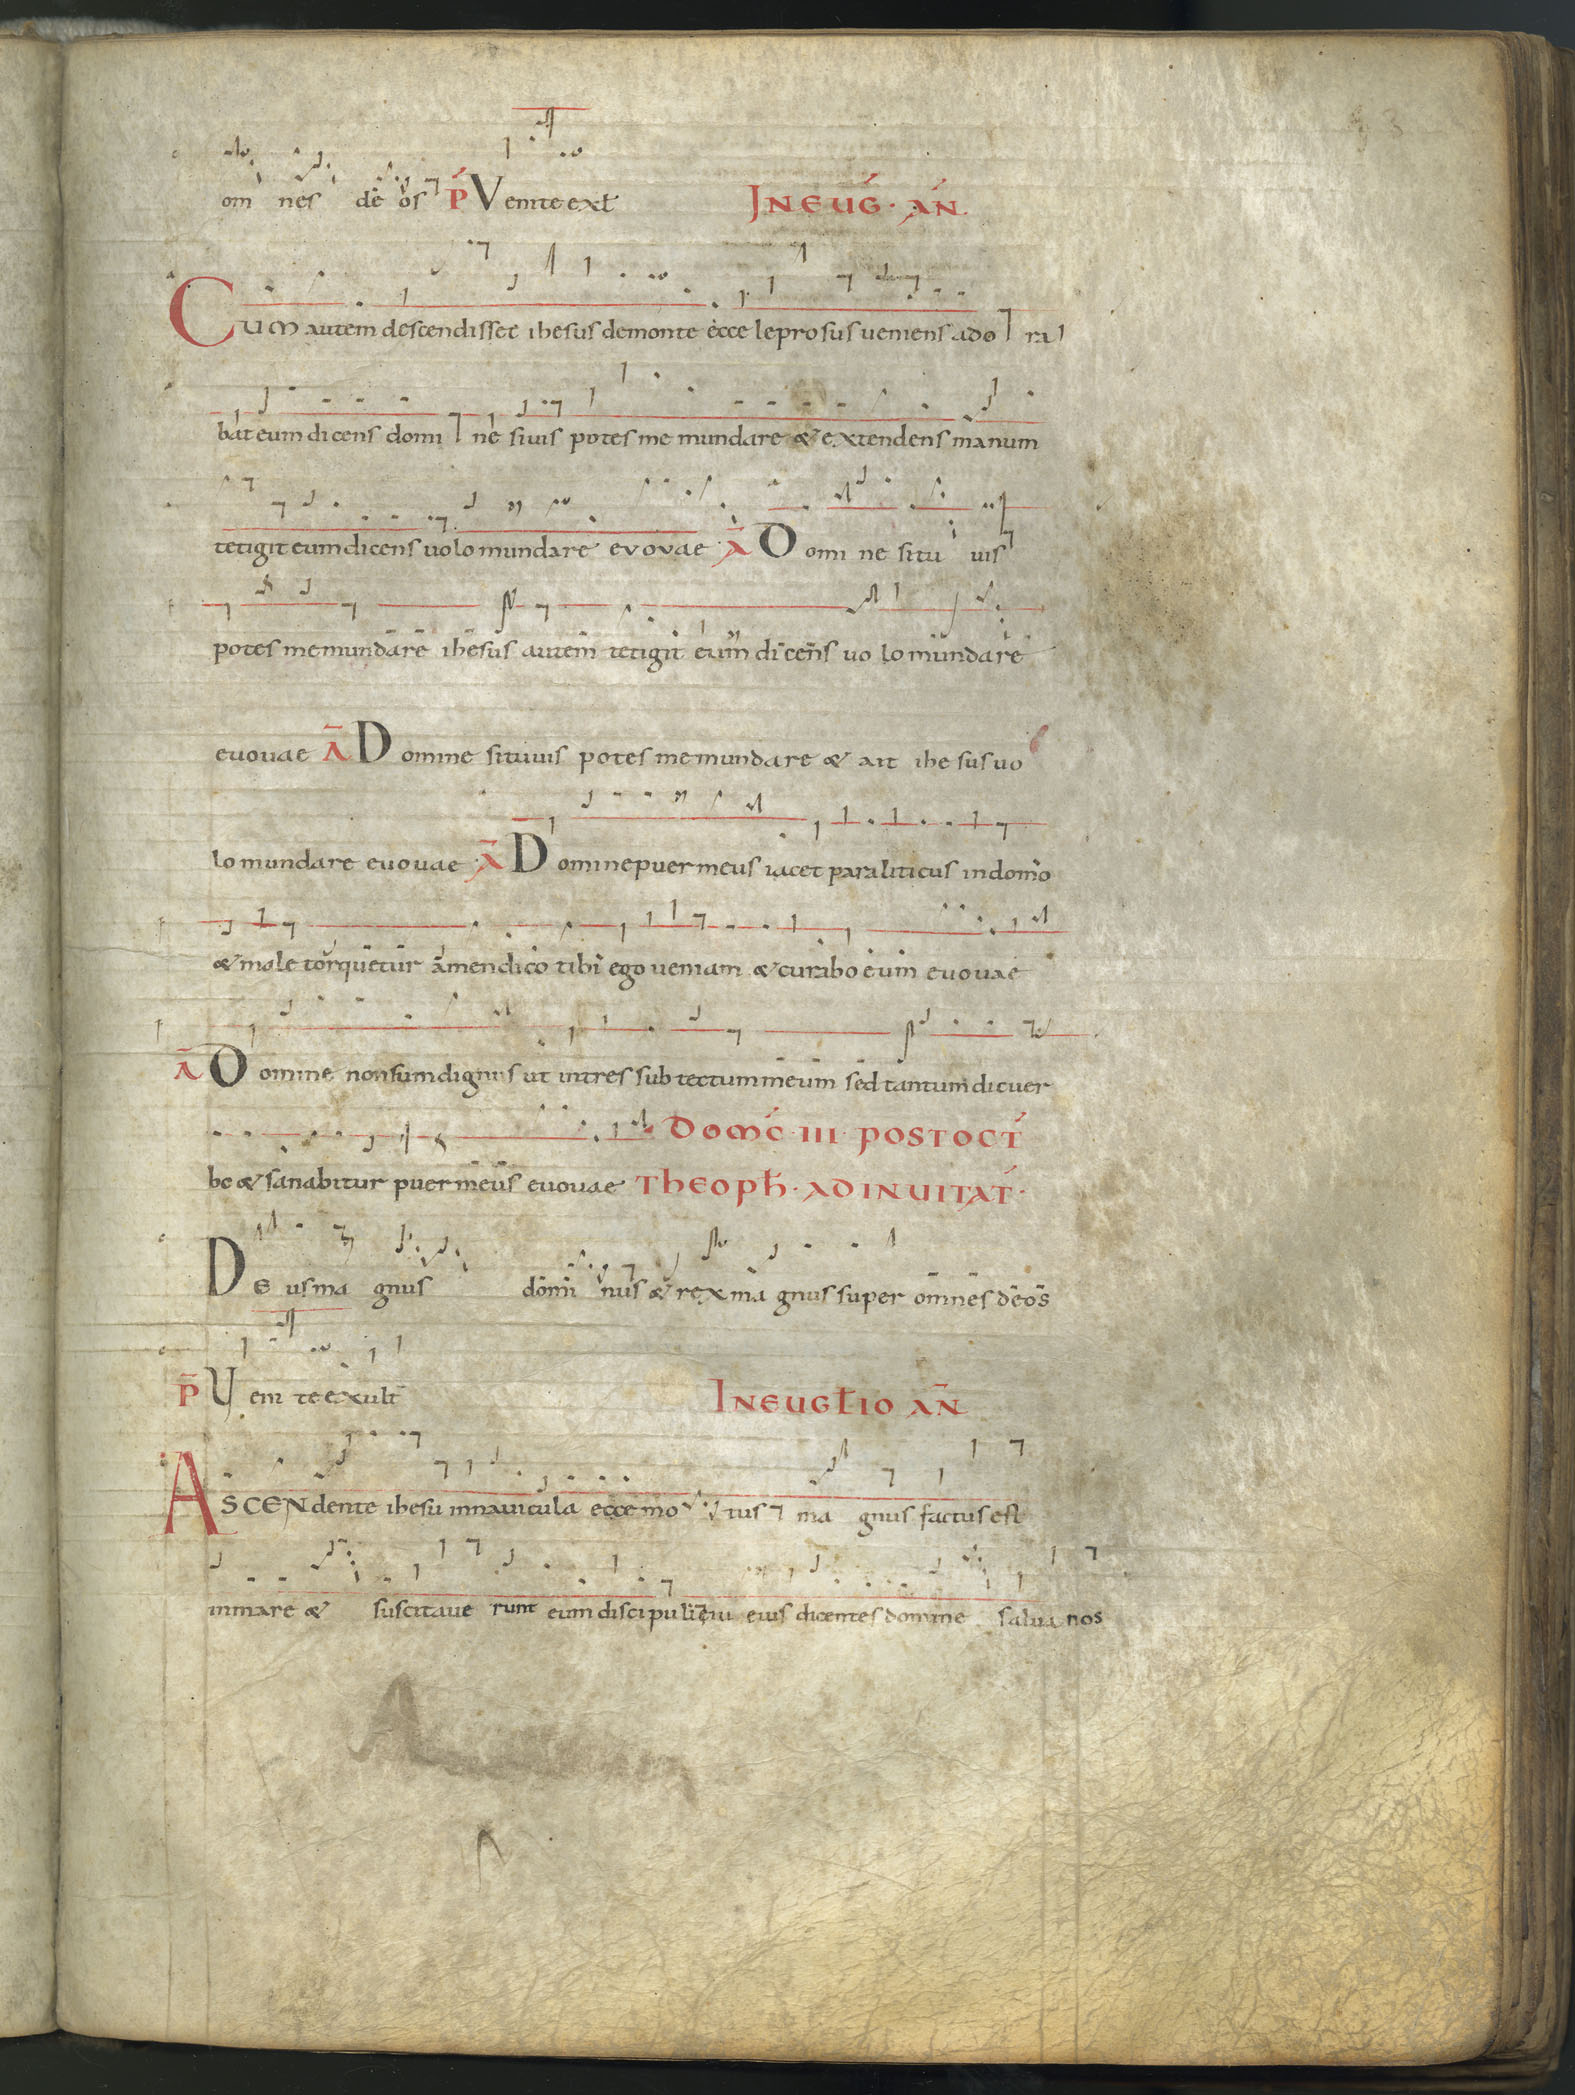 om nes de os P Venite exł
IN EUG · AN.
CUM autem descendisset ihesus demonte ecce leprosus ueniens ado ra
bat eum dicens domi ne siuis potes me mundare & extendens manum
tetigit eum dicens uolo mundare evovae A Domi ne situ uis
potes me mundare ihesus autem tetigit eum dicens uo lo mundare
euouae A Domine situuis potes me mundare & ait ihe sus uo
lo mundare euouae A Domine puer meus iacet paraliticus indomo
& male torquetur amen dico tibi ego ueniam & curabo eum euouae
A Domine non sum dignus ut intres sub tectum meum sed tantum dic uer
DOMC · III · POST OCT
bo & sanabitur puer meus euouae THEOPH · AD INUITAT ·
De us ma gnus domi nus & rex ma gnus super omnes deos
P Veni te exult
IN EUGLIO AN
ASCENdente ihesu innauicula ecce mo tus ma gnus factus est
inmare & suscitaue runt eum discipuli eius dicentes domine salua nos